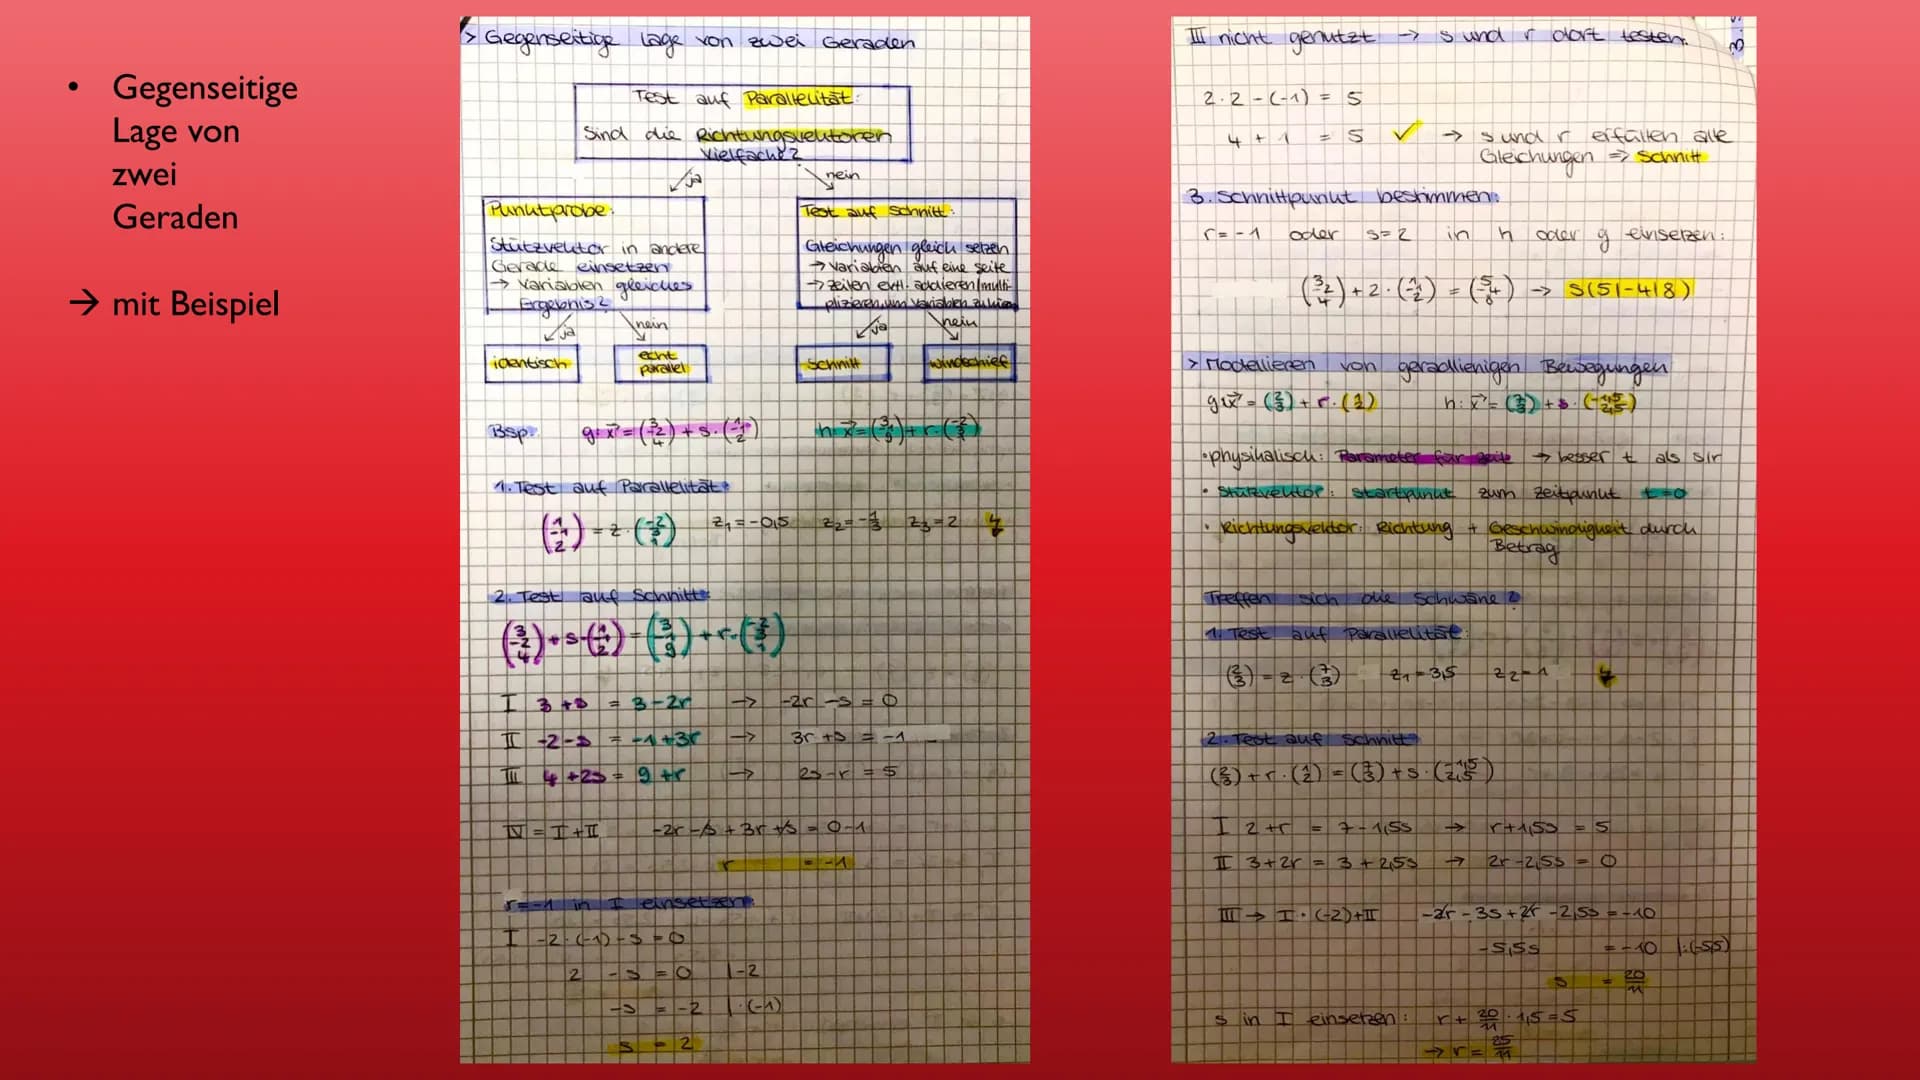 • Gegenseitige
Lage von
zwei
Geraden
→ mit Beispiel
> Gegenseitige Lage von zwei Geraden
Test auf Parallelität:
Sind die Richtungsvektoren
Vielfache?
ja
nein
Punktprobe:
Stützvektor in andere
Gerade einsetzen
→ Variablen gleiches
Ergebnis?
Test auf Schnitt:
Gleichungen gleich setzen
→ Variablen auf eine Seite
→ Zeilen evtl. addieren/multi-
plizieren, um Variablen zu
ja
nein
ja
nein
identisch
echt
parallel
Schnitt
windschief
Bsp: g: x⃗ = (3 -2 4) + s · (1 -1 2) h: x⃗ = (3 -1 9) + r · (-2 3 1)
1. Test auf Parallelität:
(1 -1 2) = z · (-2 3 1) z₁ = -0,5 z₂ = -1/3 z₃ = 2 ↯
2. Test auf Schnitt:
(3 -2 4) + s · (1 -1 2) = (3 -1 9) + r · (-2 3 1)
I 3 + s = 3 - 2r → -2r - s = 0
II -2 - s = -1 + 3r → 3r + s = -1
III 4 + 2s = 9 + r → 2s - r = 5
IV = I + II -2r - s + 3r + s = 0 - 1
r = -1
r = -1 in I einsetzen:
I -2 · (-1) - s = 0
2 - s = 0 |-2
-s = -2 | · (-1)
s = 2
III nicht genutzt → s und r dort testen.
2 · 2 - (-1) = 5
4 + 1 = 5 ✓ → s und r erfüllen alle
Gleichungen ⇒ Schnitt
3. Schnittpunkt bestimmen:
r = -1 oder s = 2 in h oder g einsetzen:
(3 -2 4) + 2 · (1 -1 2) = (5 -4 8) → S(5|-4|8)
> Modellieren von geradlienigen Bewegungen
g: x⃗ = (2 3) + r · (1 2) h: x⃗ = (7 3) + s · (-1,5 2,5)
• physikalisch: Parameter für Zeit → besser t als s/r
• Stützvektor: Startpunkt zum Zeitpunkt t=0
• Richtungsvektor: Richtung + Geschwindigkeit durch
Betrag
Treffen sich die Schwäne?
1. Test auf Parallelität:
(2 3) = z · (7 3) z₁ = 3,5 z₂ = 1 ↯
2. Test auf Schnitt
(2 3) + r · (1 2) = (7 3) + s · (-1,5 2,5)
I 2 + r = 7 - 1,5s → r + 1,5s = 5
II 3 + 2r = 3 + 2,5s → 2r - 2,5s = 0
III → I · (-2) + II -2r - 3s + 2r - 2,5s = -10
-5,5s = -10 |:(-5,5)
s = 20/11
s in I einsetzen: r + 20/11 · 1,5 = 5
→ r = 25/11